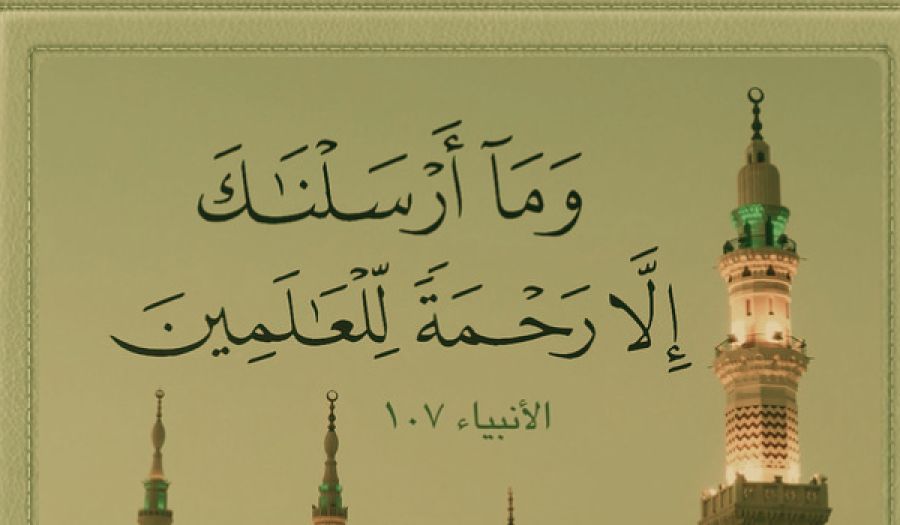 وَمَآ أَرْسَلْنَـٰكَ
إِلَّا رَحْمَةً لِّلْعَـٰلَمِينَ
الأنبياء ١٠٧